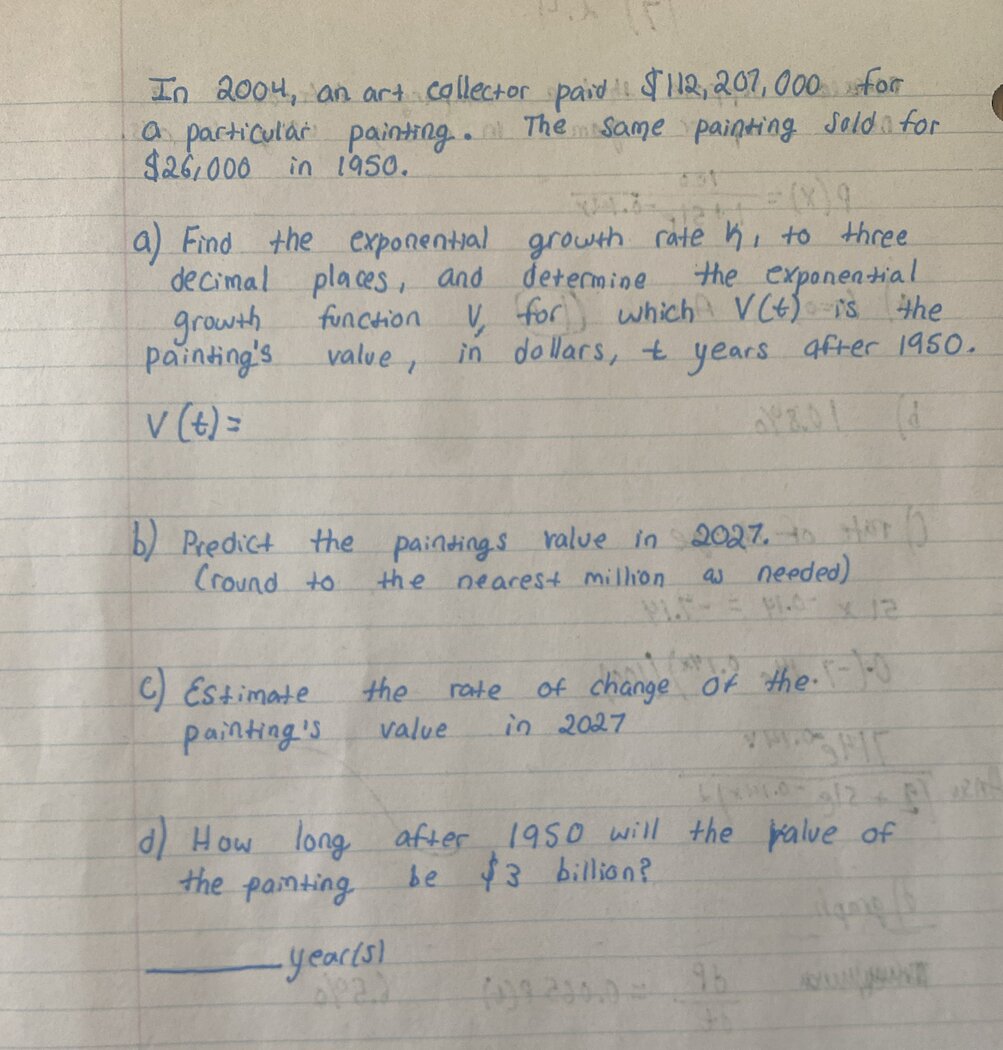 In 2004, an art collector paid $112,207,000 for
a particular painting. The same painting sold for
$26,000 in 1950.
a) Find the exponential growth rate k, to three
decimal places, and determine the exponential
growth function V, for which V(t) is the
painting's value, in dollars, t years after 1950.
V(t)=
b) Predict the paintings value in 2027.
(round to the nearest million as needed)
c) Estimate the rate of change of the
painting's value in 2027
d) How long after 1950 will the value of
the painting be $3 billion?
______ year(s)